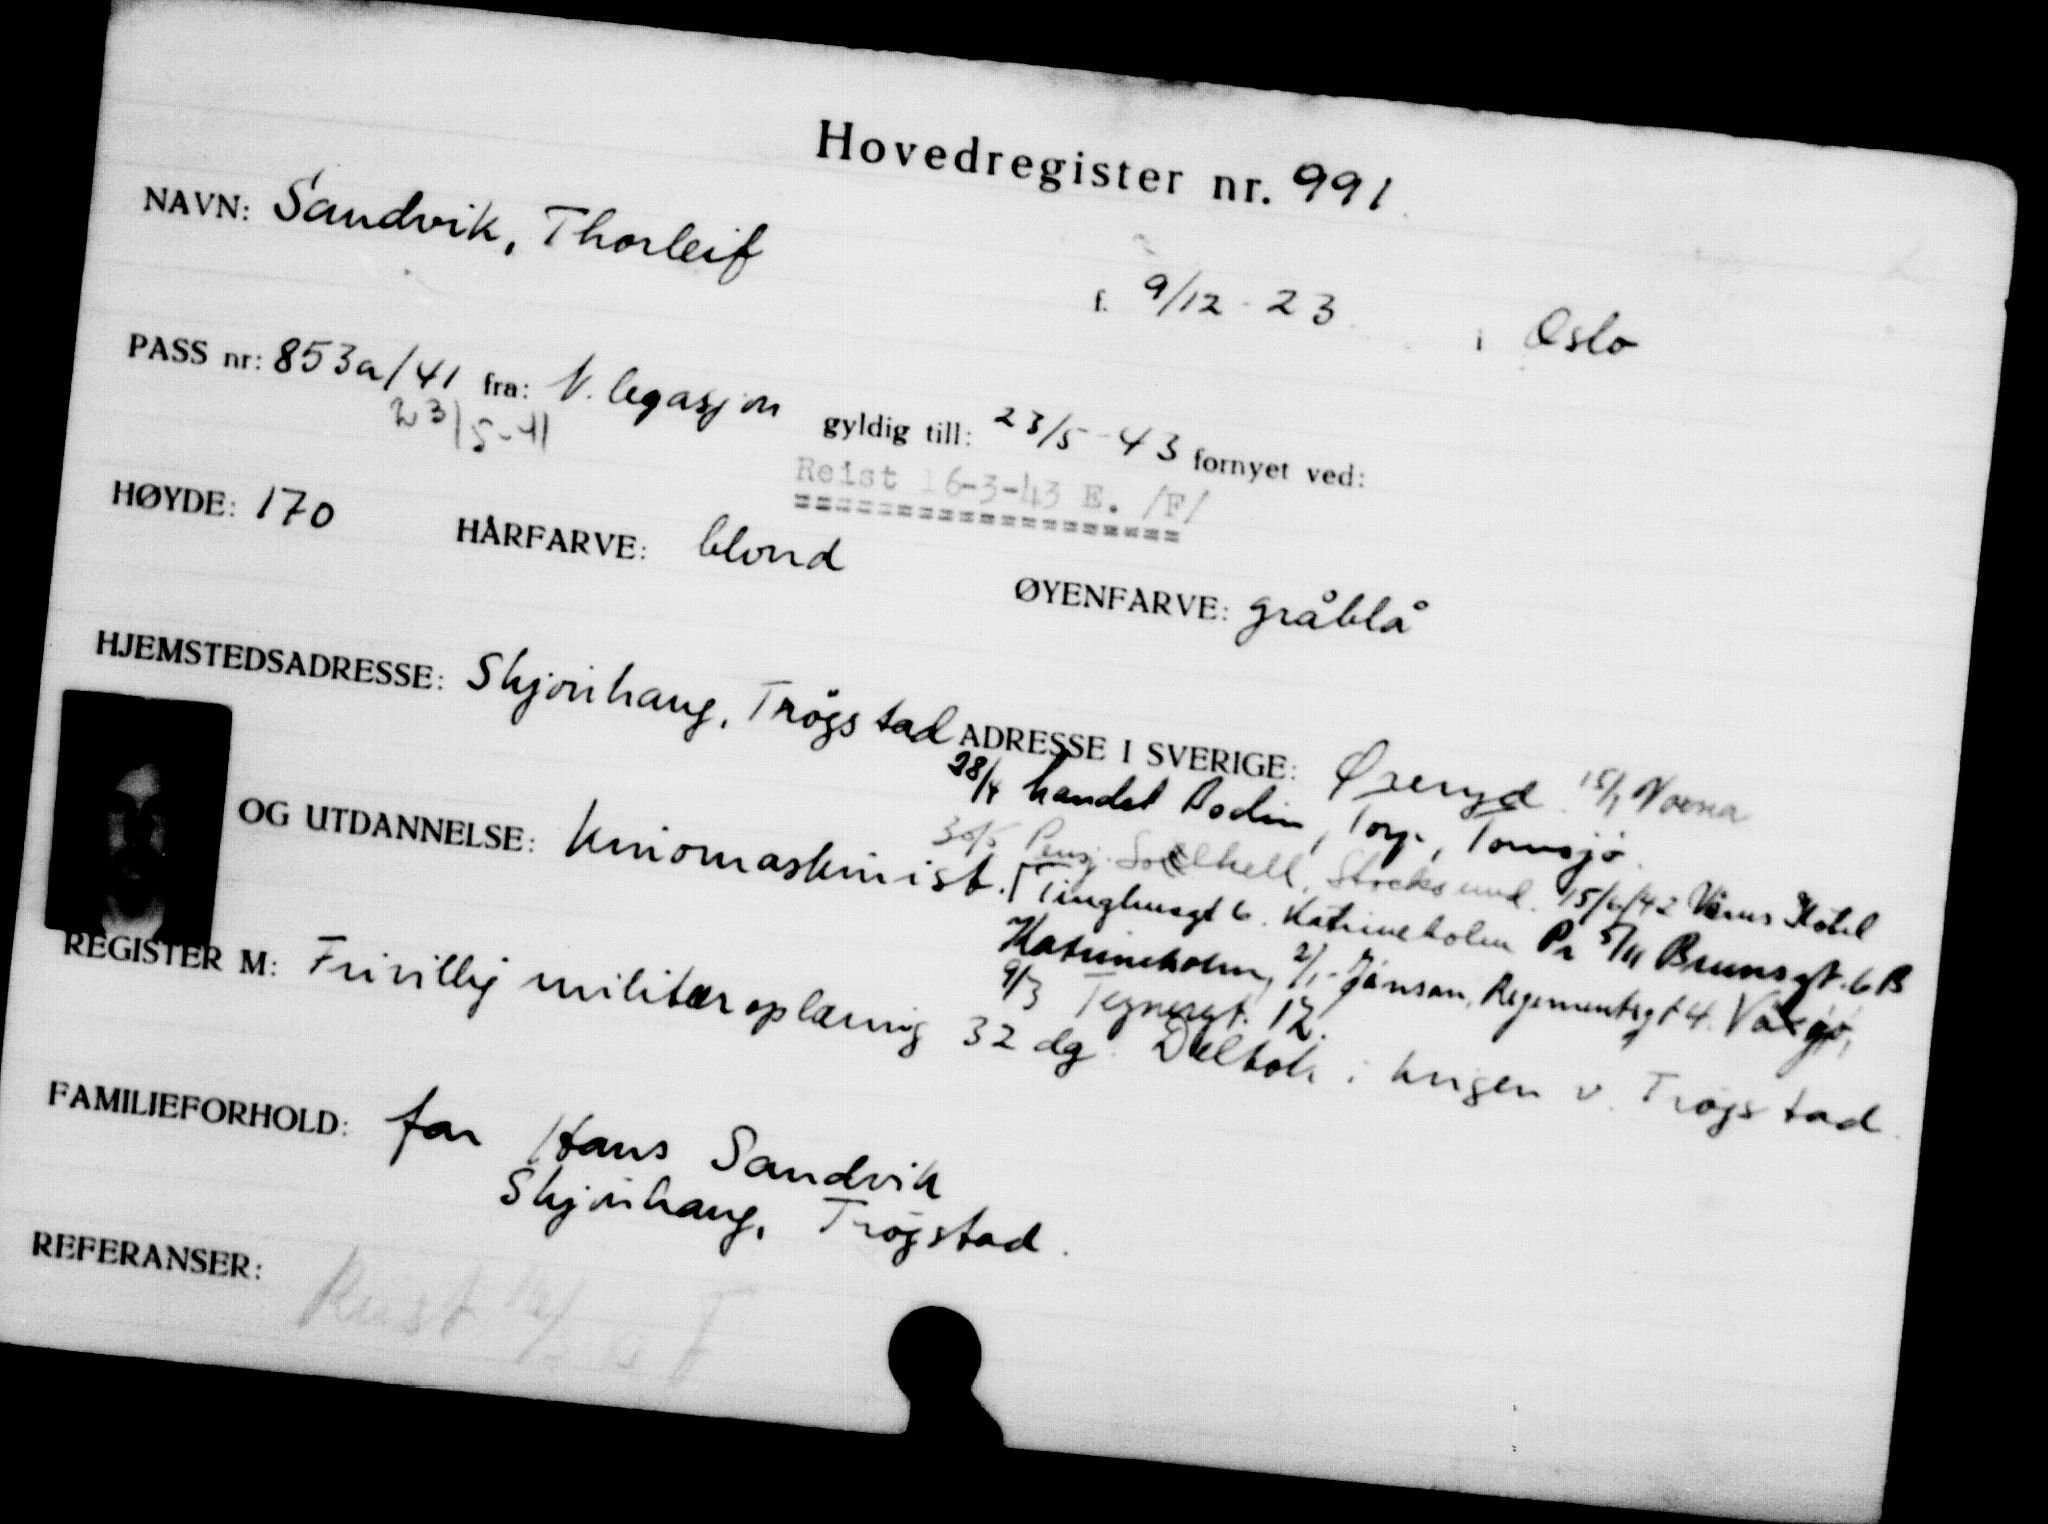 Hovedregister nr. 991.
NAVN: Sandvik, Thorleif f. 9/12-23. i Oslo
PASS nr: 853a/41 fra: N. legasjon gyldig till: 23/5-43 fornyet ved:
23/5-41
Reist 16-3-43 E. /F/
==================
HØYDE: 170 HÅRFARVE: blond ØYENFARVE: gråblå
HJEMSTEDSADRESSE: Skjønhaug, Trøgstad ADRESSE I SVERIGE: Øreryd 15/1 Voxna
28/4 Torp, Tomsjø.
OG UTDANNELSE: kinomaskinist. 30/5 Pensj. Solhell, Stocksund. 15/6/42
Tinghusgt 6. Katrineholm 5/11 Brunsgt. 6B
Katrineholm, 2/1- Jånson, Regementsgt 4. Växjö,
9/3 Tegnergt. 12.
REGISTER M: Frivillig militæroplæring 32 dg. Deltok i krigen v. Trøgstad.
FAMILIEFORHOLD: far Hans Sandvik
Skjønhaug, Trøgstad.
REFERANSER: